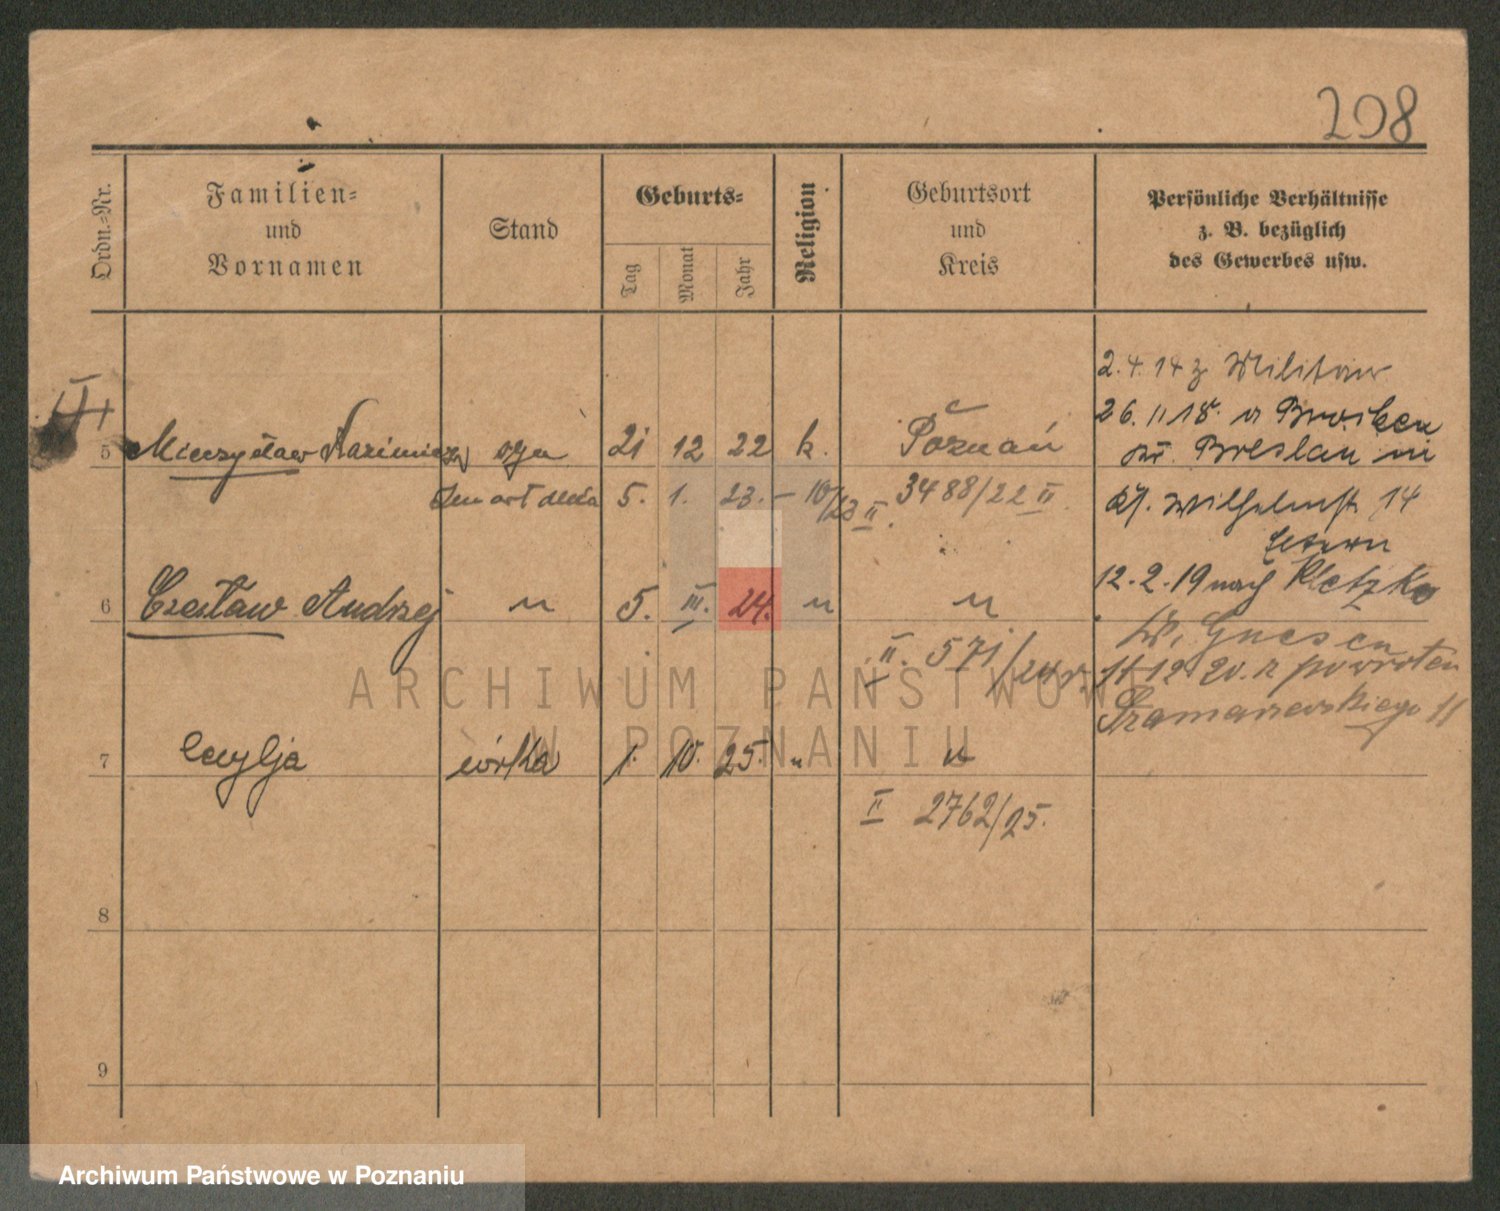 208
Ordn.-Nr.
Familien-
und
Vornamen
Stand
Geburts-
Tag
Monat
Jahr
Religion
Geburtsort
und
Kreis
Persönliche Verhältnisse
z. B. bezüglich
des Gewerbes usw.
2.4.14 z Militär
26.11.18. v
5 Mieczysław Kazimierz syn 21 12 22 k. Poznań
Kr. Breslau in
5. 1. 23. – 10/23 II. 3488/22 II
Wilhelmstr 14
Eltern
6 Czesław Andrzej " 5. III. 24. " "
12.2.19 nach Kletzko
Kr. Gnesen
II. 571/24 r.
11 12 20. z powrotem
11
7 Cecylja córka 1. 10. 25. " "
II 2762/25.
8
9
ARCHIWUM PAŃSTWOWE
W POZNANIU
Archiwum Państwowe w Poznaniu